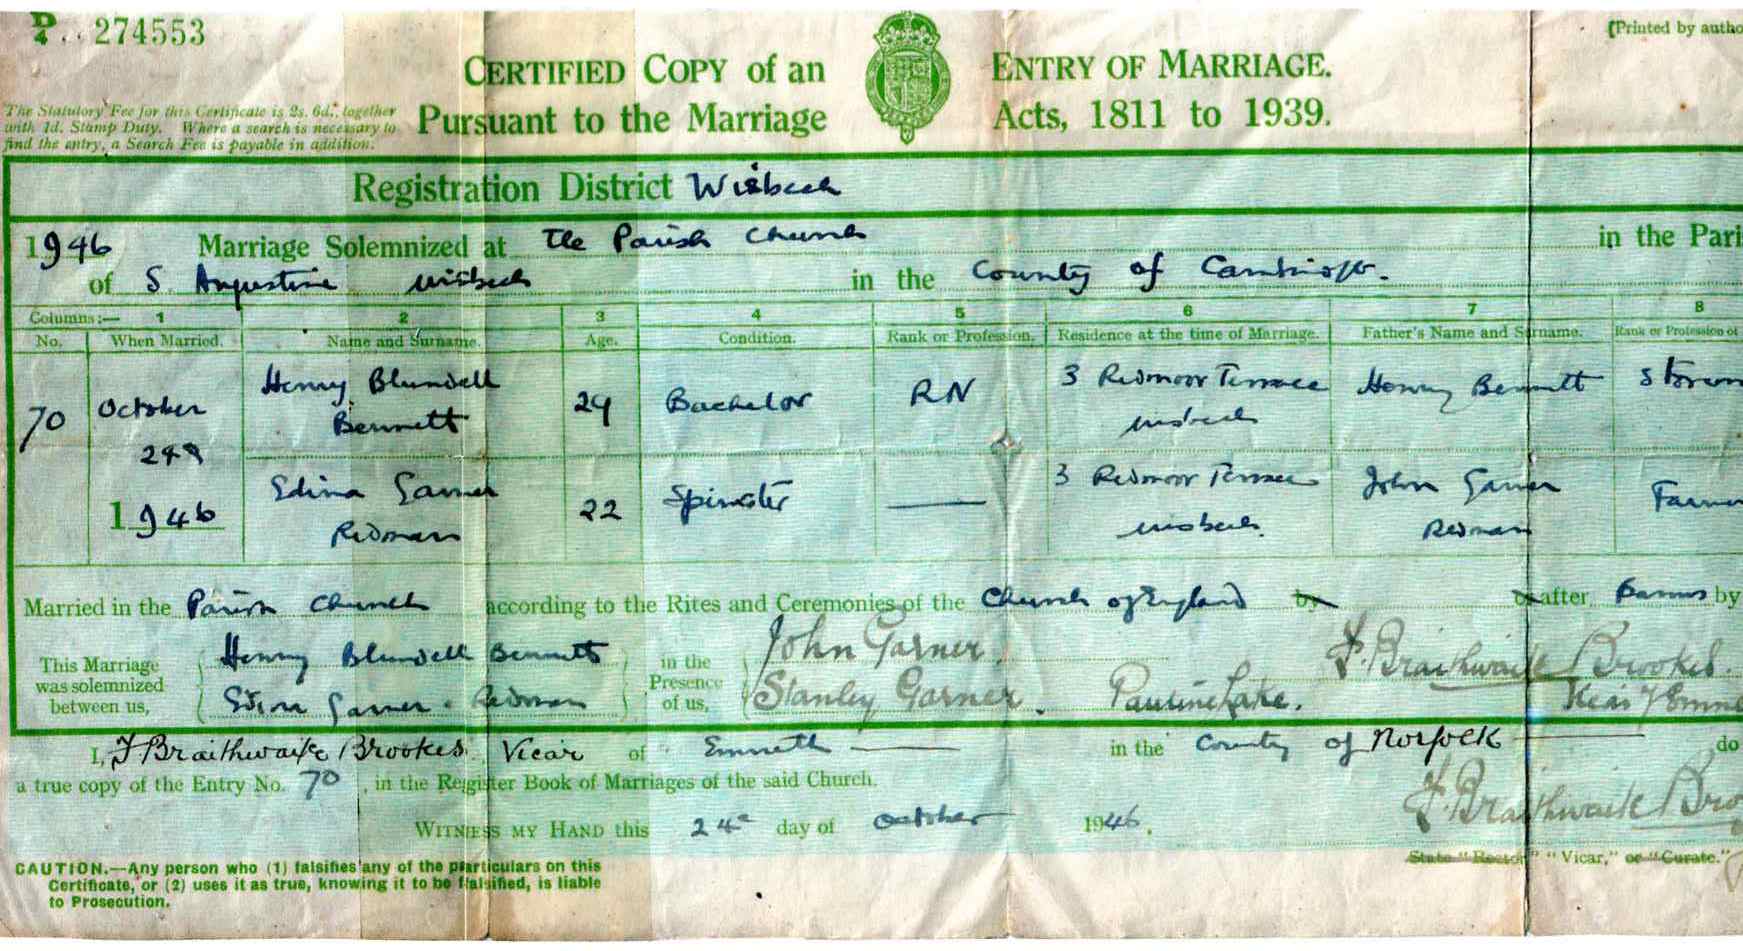 274553
[Printed by autho
CERTIFIED COPY of an ENTRY OF MARRIAGE.
Pursuant to the Marriage Acts, 1811 to 1939.
The Statutory Fee for this Certificate is 2s. 6d., together
with 1d. Stamp Duty. Where a search is necessary to
find the entry, a Search Fee is payable in addition.
Registration District Wisbech
1946 Marriage Solemnized at The Parish Church in the Pari
of S. Augustine Wisbech in the County of
Columns:— 1 2 3 4 5 6 7 8
No. When Married. Name and Surname. Age. Condition. Rank or Profession. Residence at the time of Marriage. Father's Name and Surname. Rank or Profession of
70 October 24 1946
Henry Blundell Bennett 24 Bachelor RN 3 Redmoor Terrace Wisbech Henry Bennett
Edina Garner Redman 22 Spinster — 3 Redmoor Terrace Wisbech John Garner Redman Farmer
Married in the Parish Church according to the Rites and Ceremonies of the Church of England by or after Banns by
This Marriage was solemnized between us, Henry Blundell Bennett in the Presence of us, John Garner. F. Braithwaite Brookes.
Edina Garner Redman Stanley Garner. Pauline Lake.
I, F Braithwaite Brookes Vicar of Emneth in the County of Norfolk do
a true copy of the Entry No. 70, in the Register Book of Marriages of the said Church.
F. Braithwaite Bro
WITNESS MY HAND this 24 day of October 1946.
State "Rector," "Vicar," or "Curate."
CAUTION.—Any person who (1) falsifies any of the particulars on this
Certificate, or (2) uses it as true, knowing it to be falsified, is liable
to Prosecution.